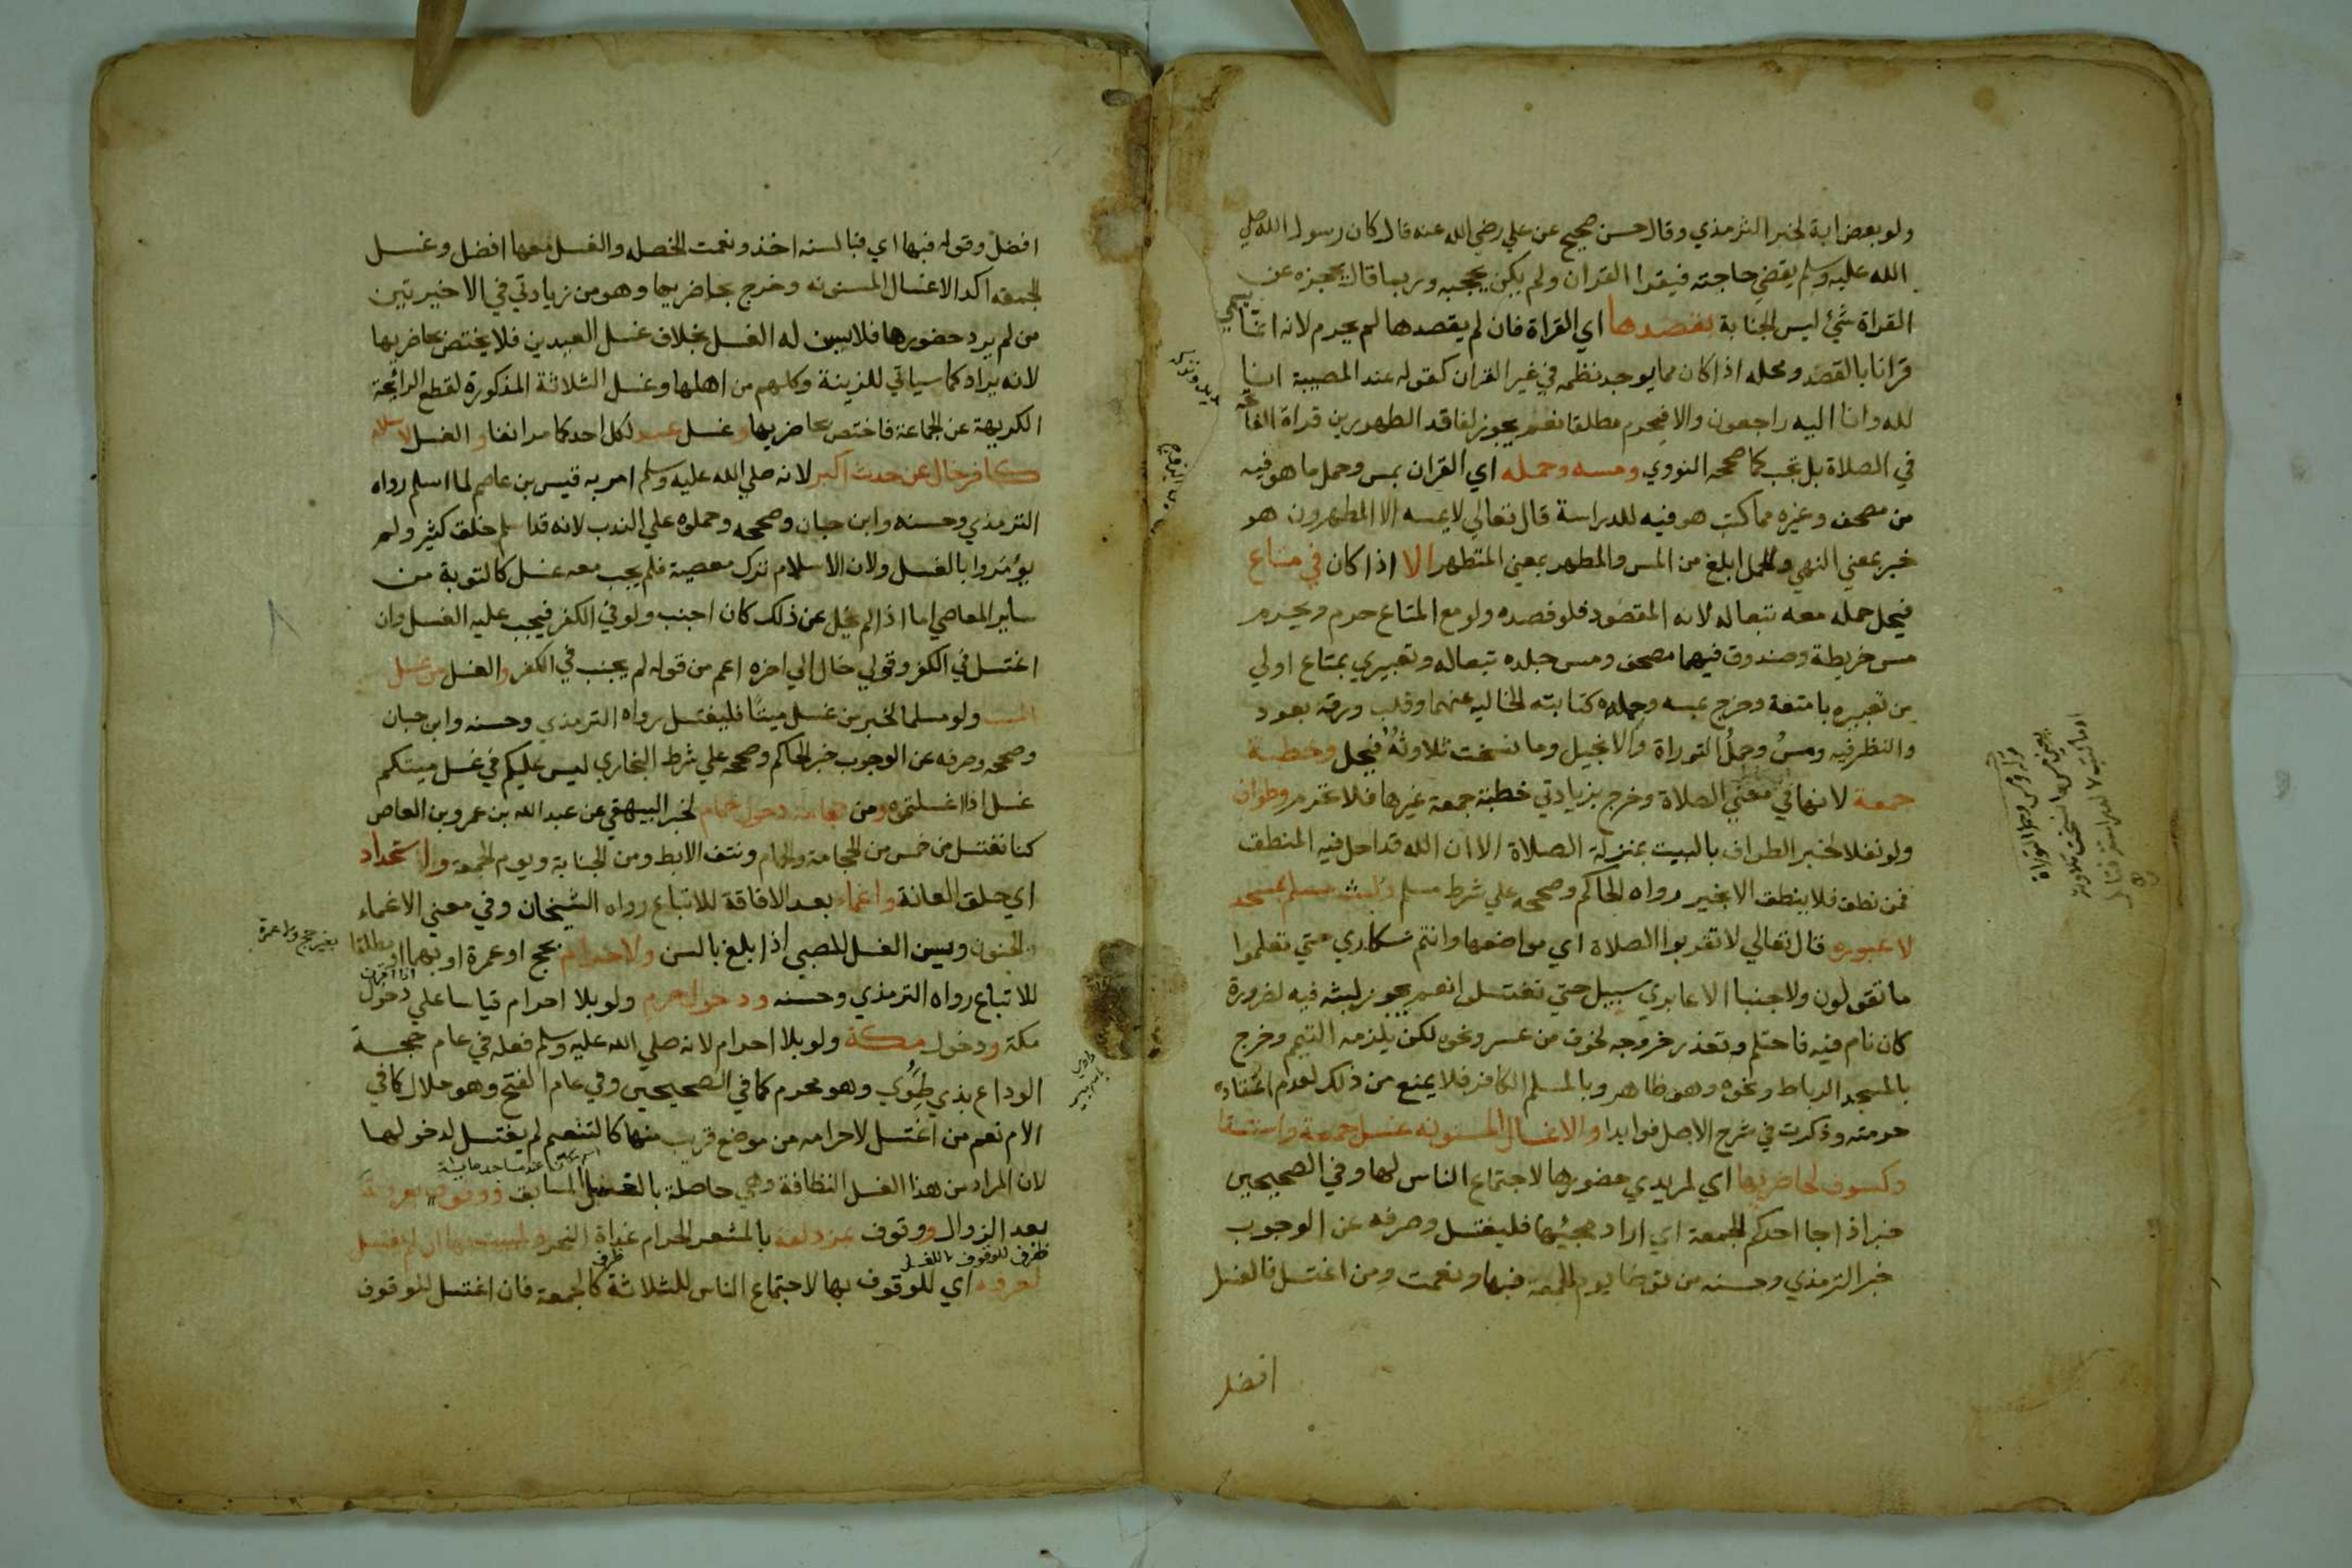 ولو بعض اية لخبر الترمذي وقال حسن صحيح عن علي رضي الله عنه قال كان رسول الله صلي
الله عليه وسلم يقضي حاجته فيقرا القران ولم يكن يحجبه وربما قال يحجزه عن
القراة شئ ليس الجنابة بقصدها اي القراة فان لم يقصدها لم يحرم لانه انما يسمي
قرانا بالقصد ومحله اذا كان مما يوجد نظمه في غير القران كقوله عند المصيبة انا
لله وانا اليه راجعون والا فيحرم مطلقا نعم يجوز لفاقد الطهورين قراة الفاتحة
في الصلاة بل تجب كما صححه النووي ومسه وحمله اي القران بمس وحمل ما هو فيه
من مصحف وغيره مما كتب هو فيه للدراسة قال تعالي لا يمسه الا المطهرون هو
خبر بمعني النهي والحمل ابلغ من المس والمطهر بمعني المتطهر الا اذا كان في متاع
فيحل حمله معه تبعا له لانه المقصود فلو قصده ولو مع المتاع حرم ويحرم
مس خريطة وصندوق فيهما مصحف ومس جلده تبعا له وتعبيري بمتاع اولي
من تعبيره بامتعة وخرج بمسه وحمله كتابته الخاليه عنهما وقلب ورقه بعود
والنظر فيه ومس وحمل التوراة والانجيل وما نسخت تلاوته فيحل وخطبة
جمعة لانها في معني الصلاة وخرج بزيادتي خطبة جمعة غيرها فلا تحرم وطواف
ولو نفلا لخبر الطواف بالبيت بمنزلة الصلاة الا ان الله قد احل فيه المنطق
فمن نطق فلا ينطق الا بخير رواه الحاكم وصححه علي شرط مسلم ولبث مسلم بمسجد
لا عبوره قال تعالي لا تقربوا الصلاة اي مواضعها وانتم سكاري حتي تعلموا
ما تقولون ولا جنبا الا عابري سبيل حتي تغتسلوا نعم يجوز لبثه فيه لضرورة
كان نام فيه فاحتلم وتعذر خروجه لخوف من عسس ونحوه لكن يلزمه التيمم وخرج
بالمسجد الرباط ونحوه وهو ظاهر وبالمسلم الكافر فلا يمنع من ذلك لعدم اعتقاده
حرمته وذكرت في شرح الاصل فوايدا والاغسال المسنونه غسل جمعة واستسقا
وكسوف لحاضريها اي لمريدي حضورها لاجتماع الناس لها وفي الصحيحين
خبر اذا جا احدكم الجمعة اي اراد مجيئها فليغتسل وصرفه عن الوجوب
خبر الترمذي وحسنه من توضا يوم الجمعة فبها ونعمت ومن اغتسل فالغسل
افضل
افضل وقوله فبها اي فبالسنه اخذ ونعمت الخصله والغسل معها افضل وغسل
الجمعه اكد الاغسال المسنونه وخرج بحاضريها وهو من زيادتي في الاخيرتين
من لم يرد حضورها فلا يسن له الغسل بخلاف غسل العيدين فلا يختص بحاضريها
لانه يراد كما سياتي للزينة وكلهم من اهلها وغسل الثلاثة المذكورة لقطع الرائحة
الكريهة عن الجماعة فاختص بحاضريها وغسل عيد لكل احد كما مر انفا والغسل لاسلام
كافر خال عن حدث اكبر لانه صلي الله عليه وسلم امر به قيس بن عاصم لما اسلم رواه
الترمذي وحسنه وابن حبان وصححه وحملوه علي الندب لانه قد اسلم خلق كثير ولم
يؤمروا بالغسل ولان الاسلام ترك معصية فلم يجب معه غسل كالتوبة من
ساير المعاصي اما اذا لم يخل عن ذلك كان اجنب ولو في الكفر فيجب عليه الغسل وان
اغتسل في الكفر وقولي خال الي اخره اعم من قوله لم يجنب في الكفر والغسل من غسل
الميت ولو مسلما لخبر من غسل ميتا فليغتسل رواه الترمذي وحسنه وابن حبان
وصححه وصرفه عن الوجوب خبر الحاكم وصححه علي شرط البخاري ليس عليكم في غسل ميتكم
غسل اذا غسلتموه ومن حجامة دخول حمام لخبر البيهقي عن عبد الله بن عمرو بن العاص
كنا نغتسل من خمس من الحجامة والحمام ونتف الابط ومن الجنابة ويوم الجمعة واستحداد
اي حلق العانة واغماء بعد الافاقة للاتباع رواه الشيخان وفي معني الاغماء
الجنون ويسن الغسل للصبي اذا بلغ بالسن ولاحرام بحج او عمرة او بهما او مطلقا
للاتباع رواه الترمذي وحسنه ودخول حرم ولو بلا احرام قياسا علي دخول
مكة ودخول مكة ولو بلا احرام لانه صلي الله عليه وسلم فعله في عام حجة
الوداع بذي طوي وهو محرم كما في الصحيحين وفي عام الفتح وهو حلال كما في
الام نعم من اغتسل لاحرامه من موضع قريب منها كالتنعيم لم يغتسل لدخولها
لان المراد من هذا الغسل النظافة وهي حاصلة بالغسل السابق ووقوف بعرفة
بعد الزوال ووقوف بمزدلفة بالمشعر الحرام غداة النحر ولمبيت بها ان لم يغتسل
ظرف للوقوف لا للغسل
لعرفه اي للوقوف بها لاجتماع الناس للثلاثة كالجمعة فان اغتسل للوقوف